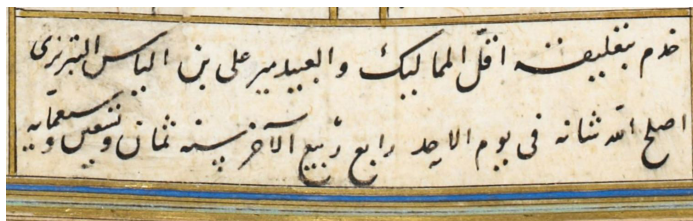 خدم بتعليقه اقلّ المماليك والعبيد مير على بن الياس التبريزى
اصلح الله شانه فى يوم الاحد رابع ربيع الآخر سنه ثمان وتسعين وسبعمايه